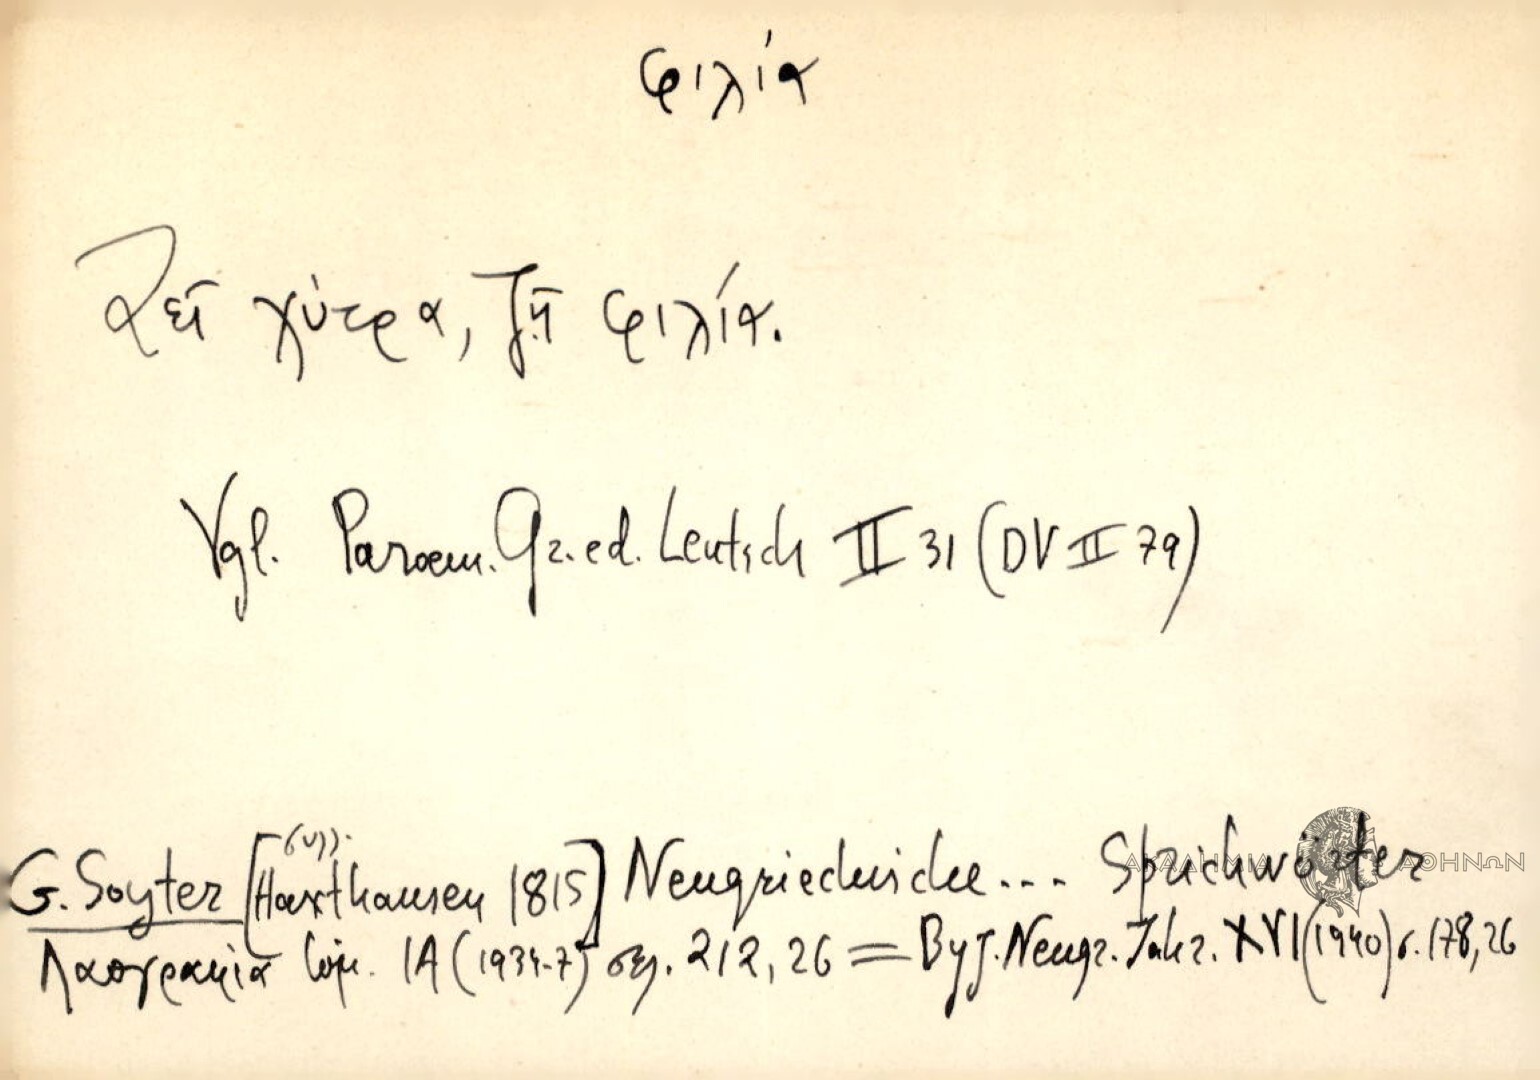 φιλία
Ζεῖ χύτρα, ζῆ φιλία.
Vgl. Paroem. Gr. ed. Leutsch II 31 (DV II 79)
G. Soyter [Haxthausen 1815] Neugriechische... Sprichwörter
Λαογραφία τόμ. ΙΑ (1934-7) σελ. 212, 26 = Byz. Neugr. Jahr. XVI (1940) σ. 178, 26
ΑΚΑΔΗΜΙΑ ΑΘΗΝΩΝ